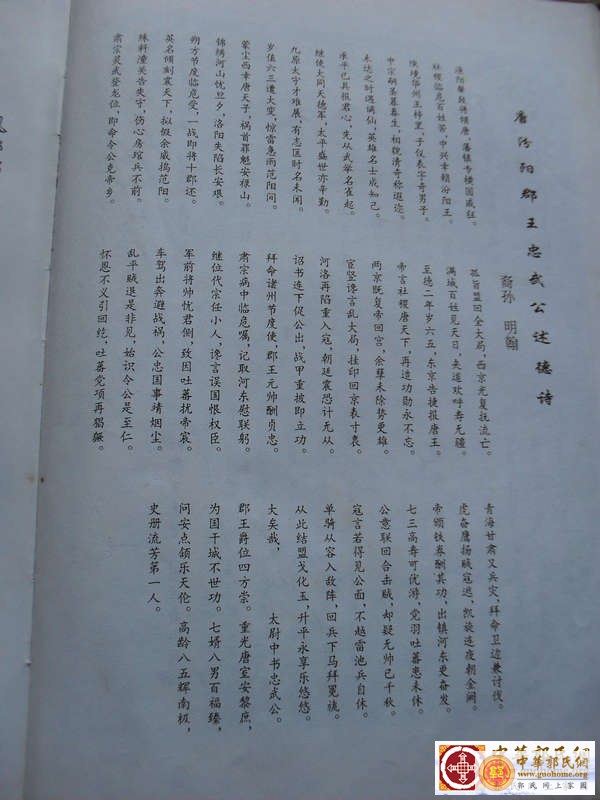 唐汾阳郡王忠武公述德诗
裔孙 明翰
渔阳鼙鼓倾唐,藩镇专横国威狂。
社稷临危百姓苦,中兴幸赖汾阳王。
境华州王柿里,子仪表字奇男子。
中宗嗣圣暮春生,相貌清奇称遐迩。
未达之时遇谪仙,英雄名士成知己。
承平已具报君心,先从武举名雀起。
继使大同天德军,太平盛世亦辛勤。
九原太守才难展,有志匡时名未闻。
岁值六三遭大变,惊雷急雨范阳间。
蒙尘西幸唐天子,祸首罪魁安禄山。
锦绣河山忧旦夕,洛阳失陷长安艰。
朔方节度临危受,一战即将十郡还。
英名倾刻震天下,拟假余威捣范阳。
殊料潼关告失守,伤心房琯兵不前。
肃宗灵武登龙位,即命令公克帝乡。
孤旨盟回全大局,西京光复抚流亡。
满城百姓见天日,夹道欢呼寿无疆。
至德二年岁六五,东京告捷报唐王。
帝言社稷唐天下,再造功勋永不忘。
两京既复帝回宫,余孽未除势更雄。
宦竖谗言乱大局,挂印回京表寸衷。
河洛再陷重入寇,朝廷震恐计无从。
诏书连下促公出,战甲重披即立功。
拜命诸州节度使,郡王元帅酬贞忠。
肃宗病中临危嘱,记取河东慰联躬。
继位代宗任小人,谗言误国恨权臣。
军前将帅忧君侧,致因吐蕃扰帝宸。
车驾出奔避战祸,公忠国事靖烟尘。
乱平贼退是非见,始识令公是至仁。
怀恩不义引回纥,吐蕃党项再猖獗。
青海甘肃又兵灾,拜命卫边兼讨伐。
虎奋鹰扬贼寇逃,凯旋连夜朝金阙。
帝颁铁券酬其功,出镇河东更奋发。
七三高寿可优游,党羽吐蕃患未休。
公意联回合击贼,却疑无帅已千秋。
寇言若得见公面,不越雷池兵自休。
单骑从容入敌阵,回兵下马拜冕旒。
从此结盟戈化玉,升平永享乐悠悠。
大矣哉, 太尉中书忠武公。
郡王爵位四方崇。重光唐室安黎庶,
为国干城不世功。七婿八男百福臻,
问安点颔乐天伦。高龄八五辉南极,
史册流芳第一人。
中华郭氏网
中華郭氏網
www.guohome.org
郭氏网上家园